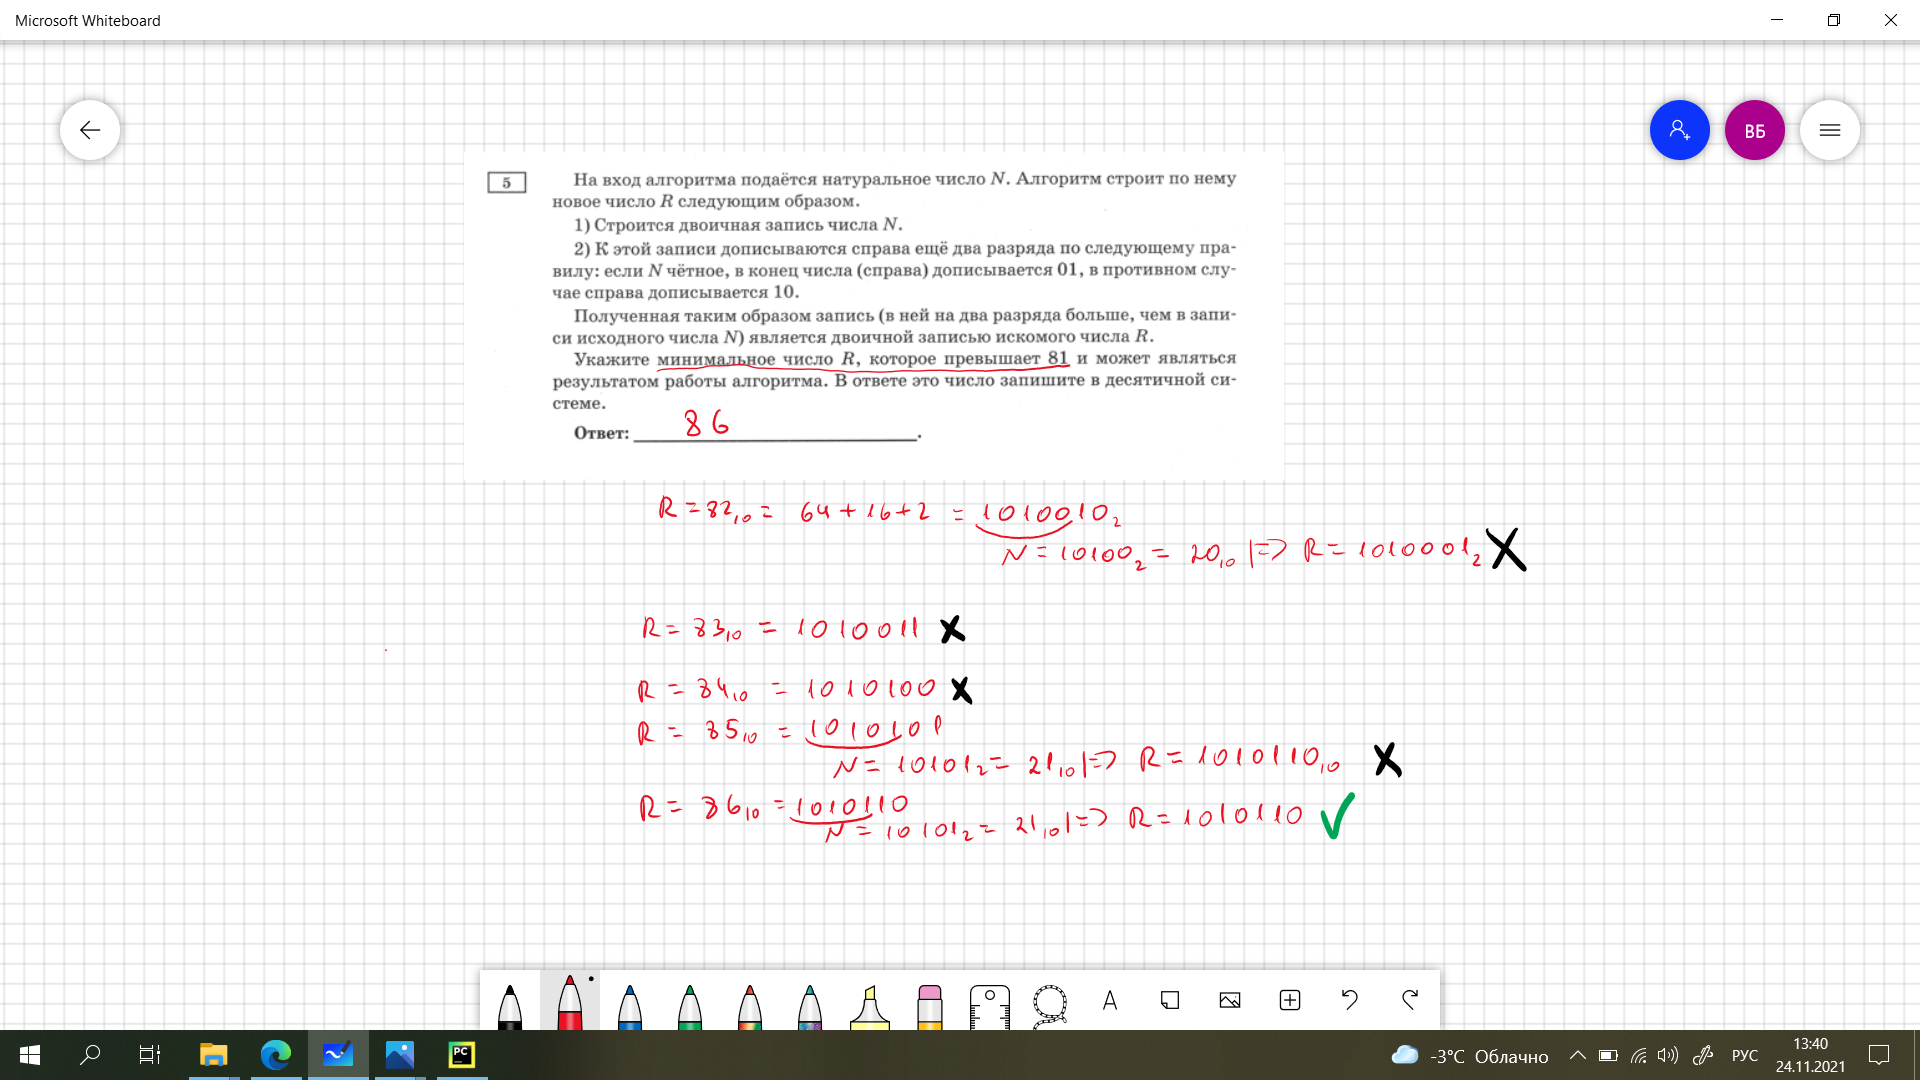 Microsoft Whiteboard
ВБ
5
На вход алгоритма подаётся натуральное число N. Алгоритм строит по нему
новое число R следующим образом.
1) Строится двоичная запись числа N.
2) К этой записи дописываются справа ещё два разряда по следующему пра-
вилу: если N чётное, в конец числа (справа) дописывается 01, в противном слу-
чае справа дописывается 10.
Полученная таким образом запись (в ней на два разряда больше, чем в запи-
си исходного числа N) является двоичной записью искомого числа R.
Укажите минимальное число R, которое превышает 81 и может являться
результатом работы алгоритма. В ответе это число запишите в десятичной си-
стеме.
Ответ: 86.
R = 82₁₀ = 64 + 16 + 2 = 1010010₂
N = 10100₂ = 20₁₀ |=> R = 1010001₂ X
R = 83₁₀ = 1010011 X
R = 84₁₀ = 1010100 X
R = 85₁₀ = 1010101
N = 10101₂ = 21₁₀ |=> R = 1010110₁₀ X
R = 86₁₀ = 1010110
N = 10101₂ = 21₁₀ |=> R = 1010110 ✓
PC
-3°C Облачно
РУС
13:40
24.11.2021